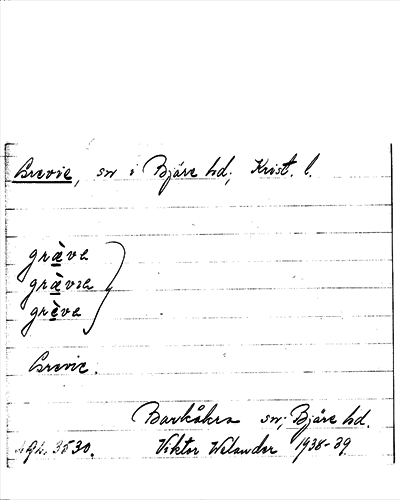 Grevie, sn i Bjäre hd, Krist. l.
græ̀va
græ̀vıa
grèva
Grevie.
Barkåkra sn; Bjäre hd.
3530. Viktor Welander 1938-39